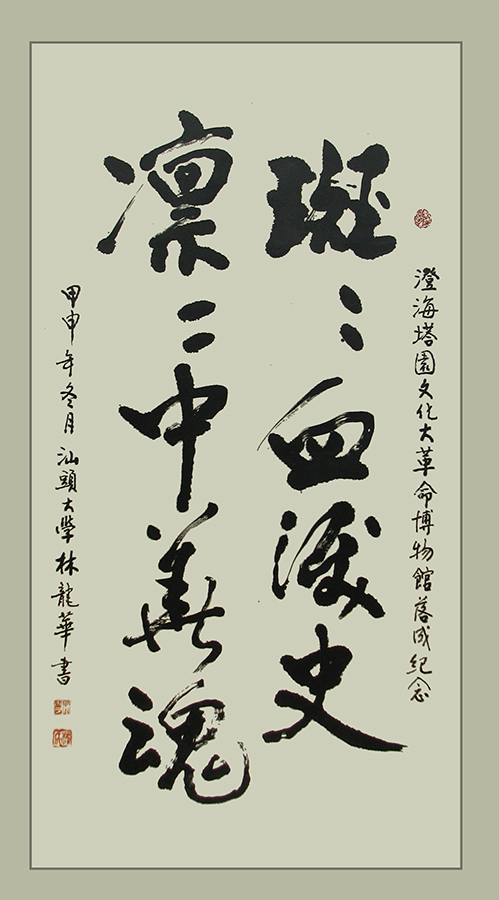 澄海塔園文化大革命博物館落成紀念
斑〻血淚史
凛〻中華魂
甲申年冬月汕頭大學林龍華書